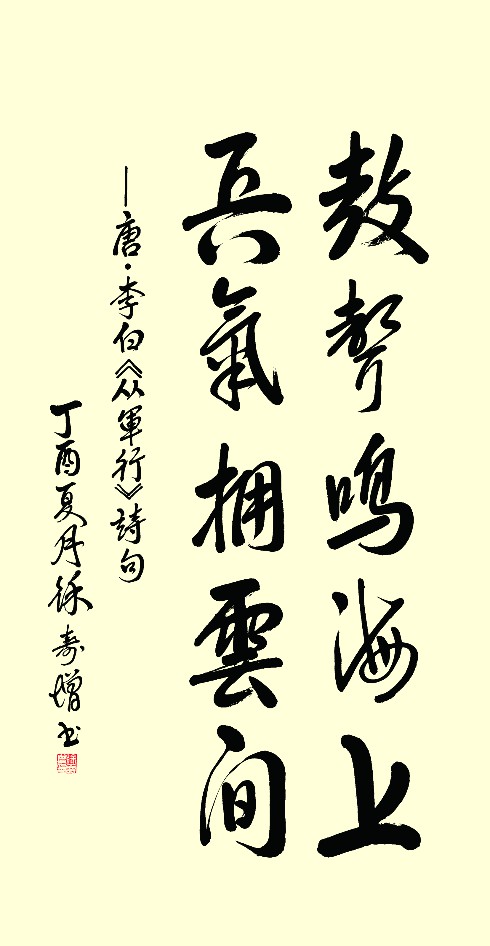 鼓聲鳴海上
兵氣擁雲间
—唐·李白《从軍行》詩句
丁酉夏月徐寿增书